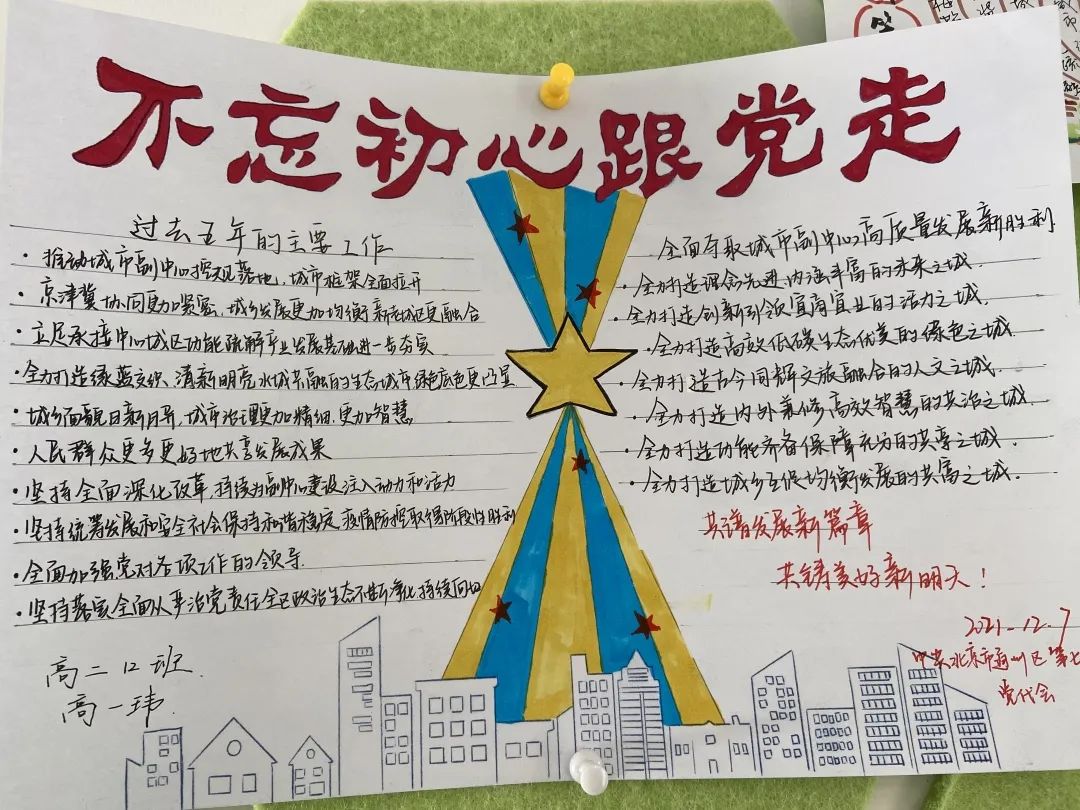 不忘初心跟党走
过去五年的主要工作
· 推动城市副中心控规落地,城市框架全面拉开
· 京津冀协同更加紧密,城乡发展更加均衡新老城区更融合
· 立足承接中心城区功能疏解产业发展基础进一步夯实
· 全力打造绿蓝交织、清新明亮水城共融的生态城市绿色底色更凸显
· 城乡面貌日新月异,城市治理更加精细.更加智慧
· 人民群众更多更好地共享发展成果
· 坚持全面深化改革,持续为副中心建设注入动力和活力
· 坚持统筹发展和安全社会保持和谐稳定,疫情防控取得阶段性胜利
· 全面加强党对各项工作的领导
· 坚持落实全面从严治党责任全区政治生态不断净化持续向好
高二12班.
高一玮.
全面夺取城市副中心高质量发展新胜利
· 全力打造理念先进、内涵丰富的未来之城.
· 全力打造创新引领宜商宜业的活力之城.
· 全力打造高效低碳生态优美的绿色之城.
· 全力打造古今同辉文旅融合的人文之城.
· 全力打造内外兼修高效智慧的共治之城.
· 全力打造功能齐备保障充分的共享之城.
· 全力打造城乡互促均衡发展的共富之城.
共谱发展新篇章
共铸美好新明天!
2021-12.7
中共北京市通州区第七
党代会